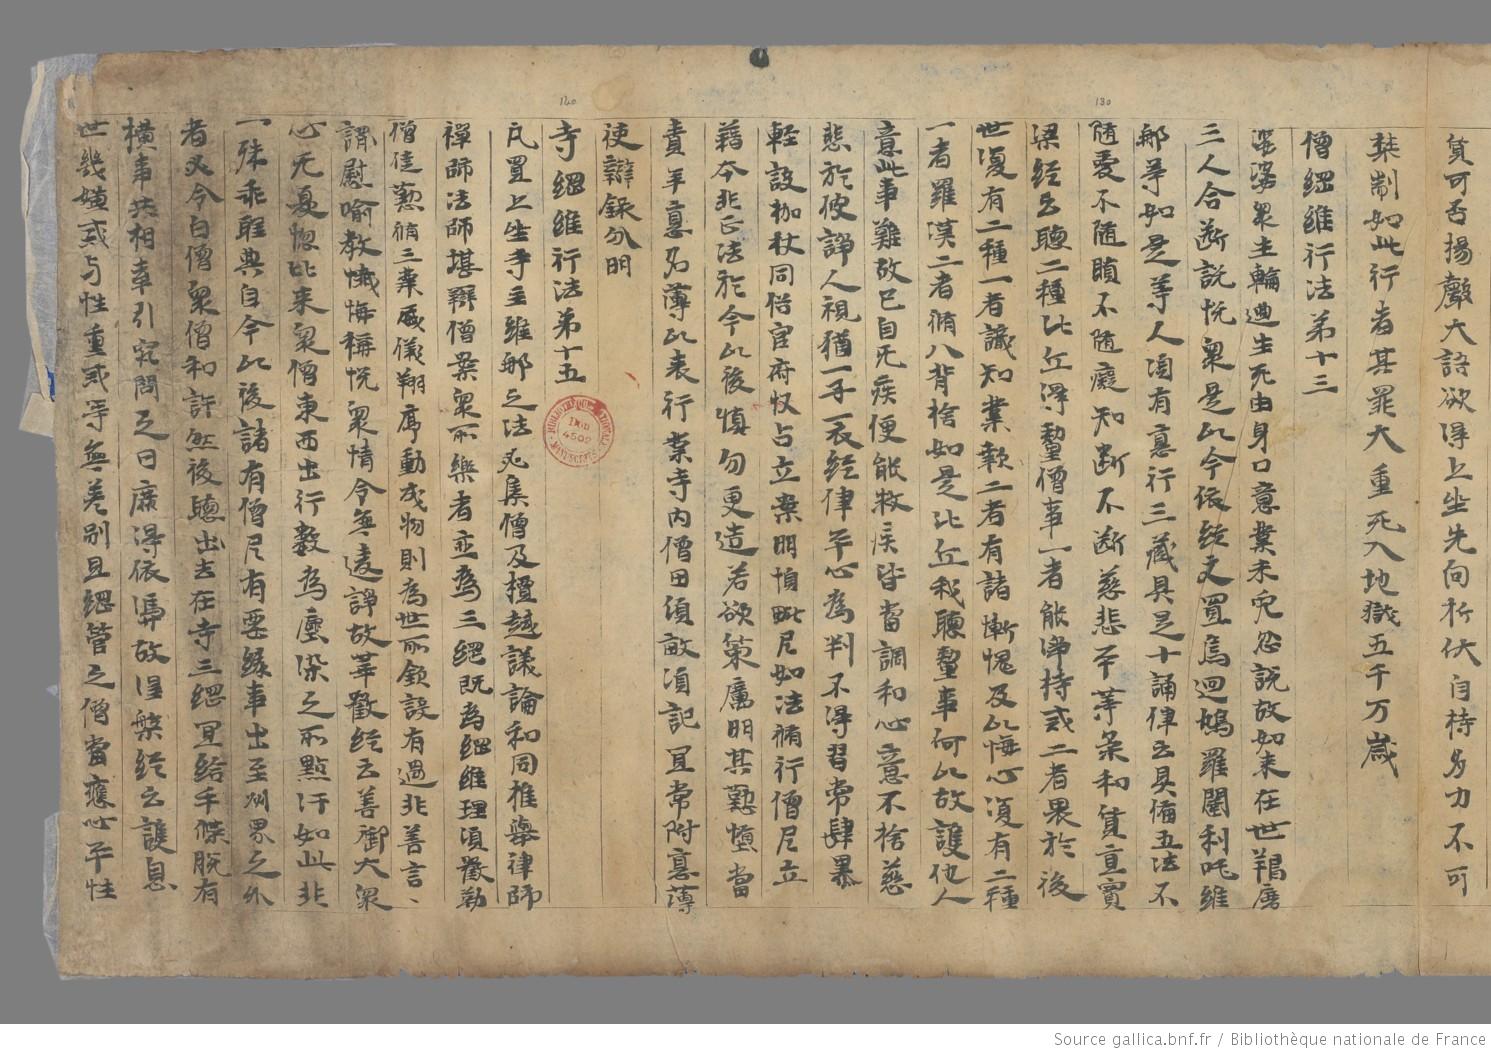 貨可否揚聲大語欲得上坐先向析伏自持多力不可
禁制如此行者其罪大重死入地獄五千万歲
僧綱維行法第十三
眾坐輪迴生死由身口意業未免忿說故如来在世羯磨
三人合断說悅眾是以今依經文置焉迴鳩羅闍利吒維
那等如是等人閏有意行三藏具足十誦律云具備五法不
随愛不随瞋不随癡知断不断慈悲平等柔和質直實
梁經云聽二種比丘得螫僧事一者能淨持戒二者畏於後
世復有二種一者識知業報二者有諸慚愧及以悔心復有二種
一者羅漢二者脩八背捨如是比丘我聽螫事何以故護他人
意此事難故已自无疾便能救疾皆當調和心意不捨慈
悲於彼諍人視猶一子一衣經律平心為判不得習常肆暴
輕設枷杖同俗官府收占立案明愼毗尼如法脩行僧尼立
藉本非正法於今以後慎勿更造若欲策厲明其勤憻當
責年意名薄以表行業寺内僧田須畝頃記宜常附意薄
使辯録分明
140
130
寺綱維行法第十五
凡置上坐寺主維那之法必集僧及檀越議論和同推舉律師
禪師法師堪辯僧業眾所樂者並為三綱既為綱維理須徵勒
僧徒懃脩三業威儀翔序動成物則為世所欽設有過非善言、
謂慰喻教懺悔稱悅眾情令無違諍故華嚴經云善御大眾
心无憂惱比来眾僧東西出行數為塵染之所點汙如此非
一殊乖聖典自今以後諸有僧尼有要緣事出至州界之外
者必令白僧眾僧和許然後聽出去在寺三綱宜給手牒脫有
横事共相牽引究問之日庶得依馮故涅槃經云護息
世幾嫌戒与性重戒等無差別且綱管之僧當應心平性
BIBLIOTHÈQUE NATIONALE
DON
4502
MANUSCRITS
Source gallica.bnf.fr / Bibliothèque nationale de France